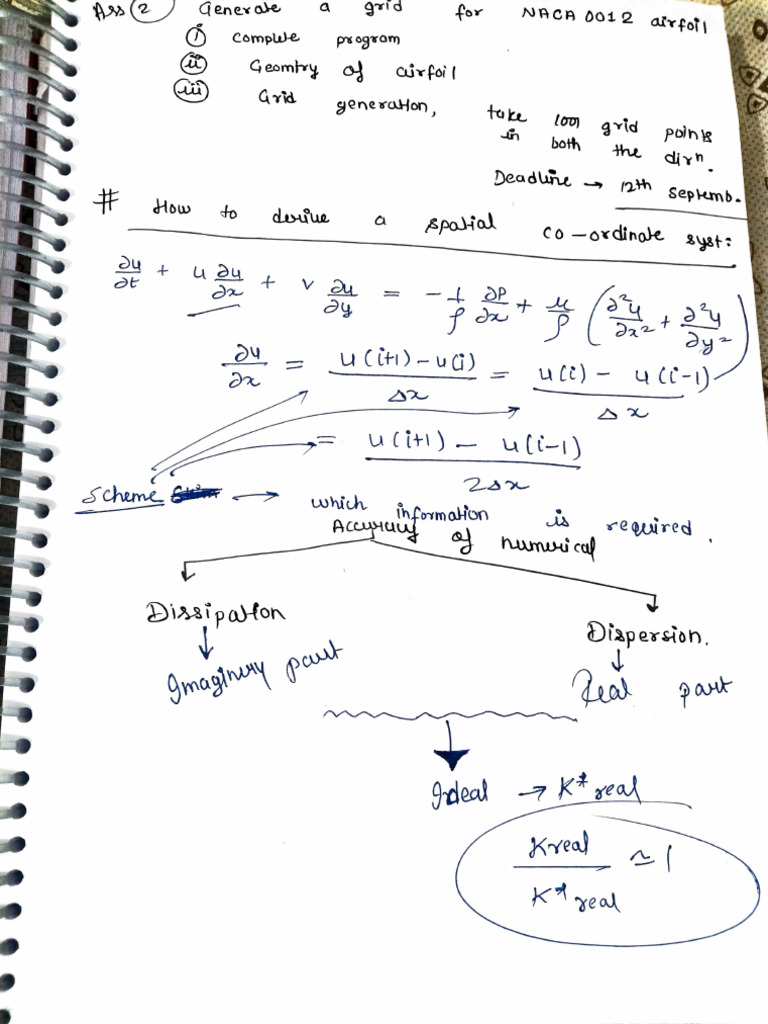 Ass ② Generate a grid for NACA 0012 airfoil
ⓘ complete program
ⓘⓘ Geomtry of airfoil
ⓘⓘⓘ Grid generation, take 1001 grid points
in both the dirⁿ.
Deadline → 12th Septemb.
# How to derive a spatial co-ordinate syst:
∂u/∂t + u ∂u/∂x + v ∂u/∂y = -1/ρ ∂P/∂x + μ/ρ (∂²u/∂x² + ∂²u/∂y²)
∂u/∂x = u(i+1) - u(i) / Δx = u(i) - u(i-1) / Δx
= u(i+1) - u(i-1) / 2Δx
Scheme → which information is required.
Accuracy of numerical
Dissipation Dispersion.
Imaginary part Real part
Ideal → K* real
Kreal / K* real ≃ 1